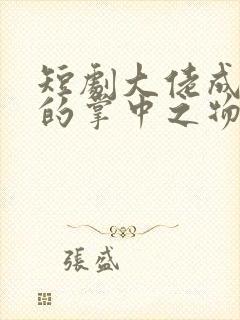 短劇大佬成
的掌中之物
張盛